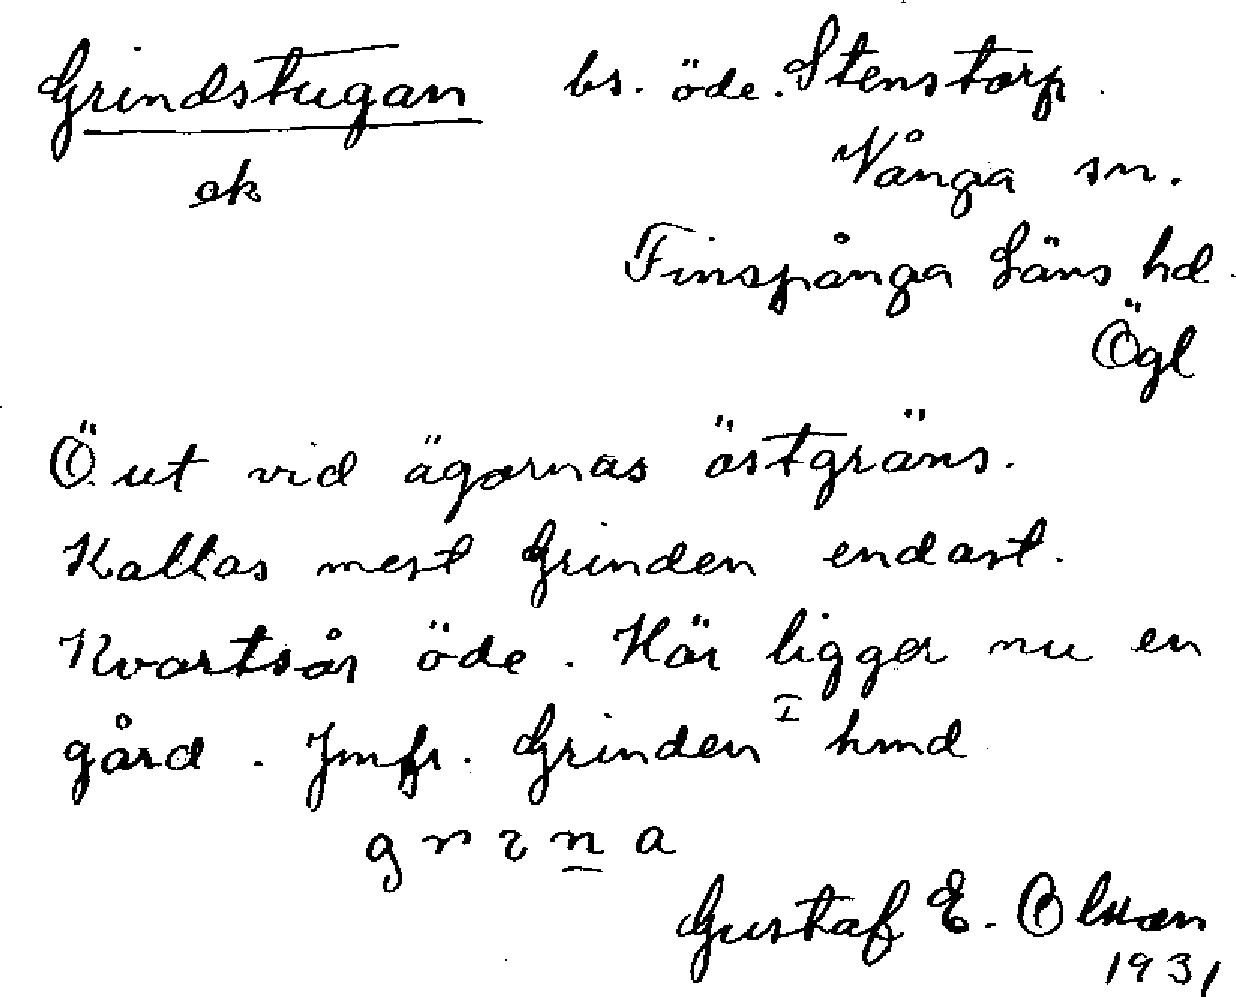 Grindstugan bs. öde. Stenstorp.
ek Vånga sn.
Finspånga Läns hd.
Ögl
Ö. ut vid ägornas östgräns.
Kallas mest Grinden endast.
Kvartsår öde. Här ligger nu en
gård. Jmfr. Grinden I hmd
g r ɩ n a
Gustaf E. Olsson
1931